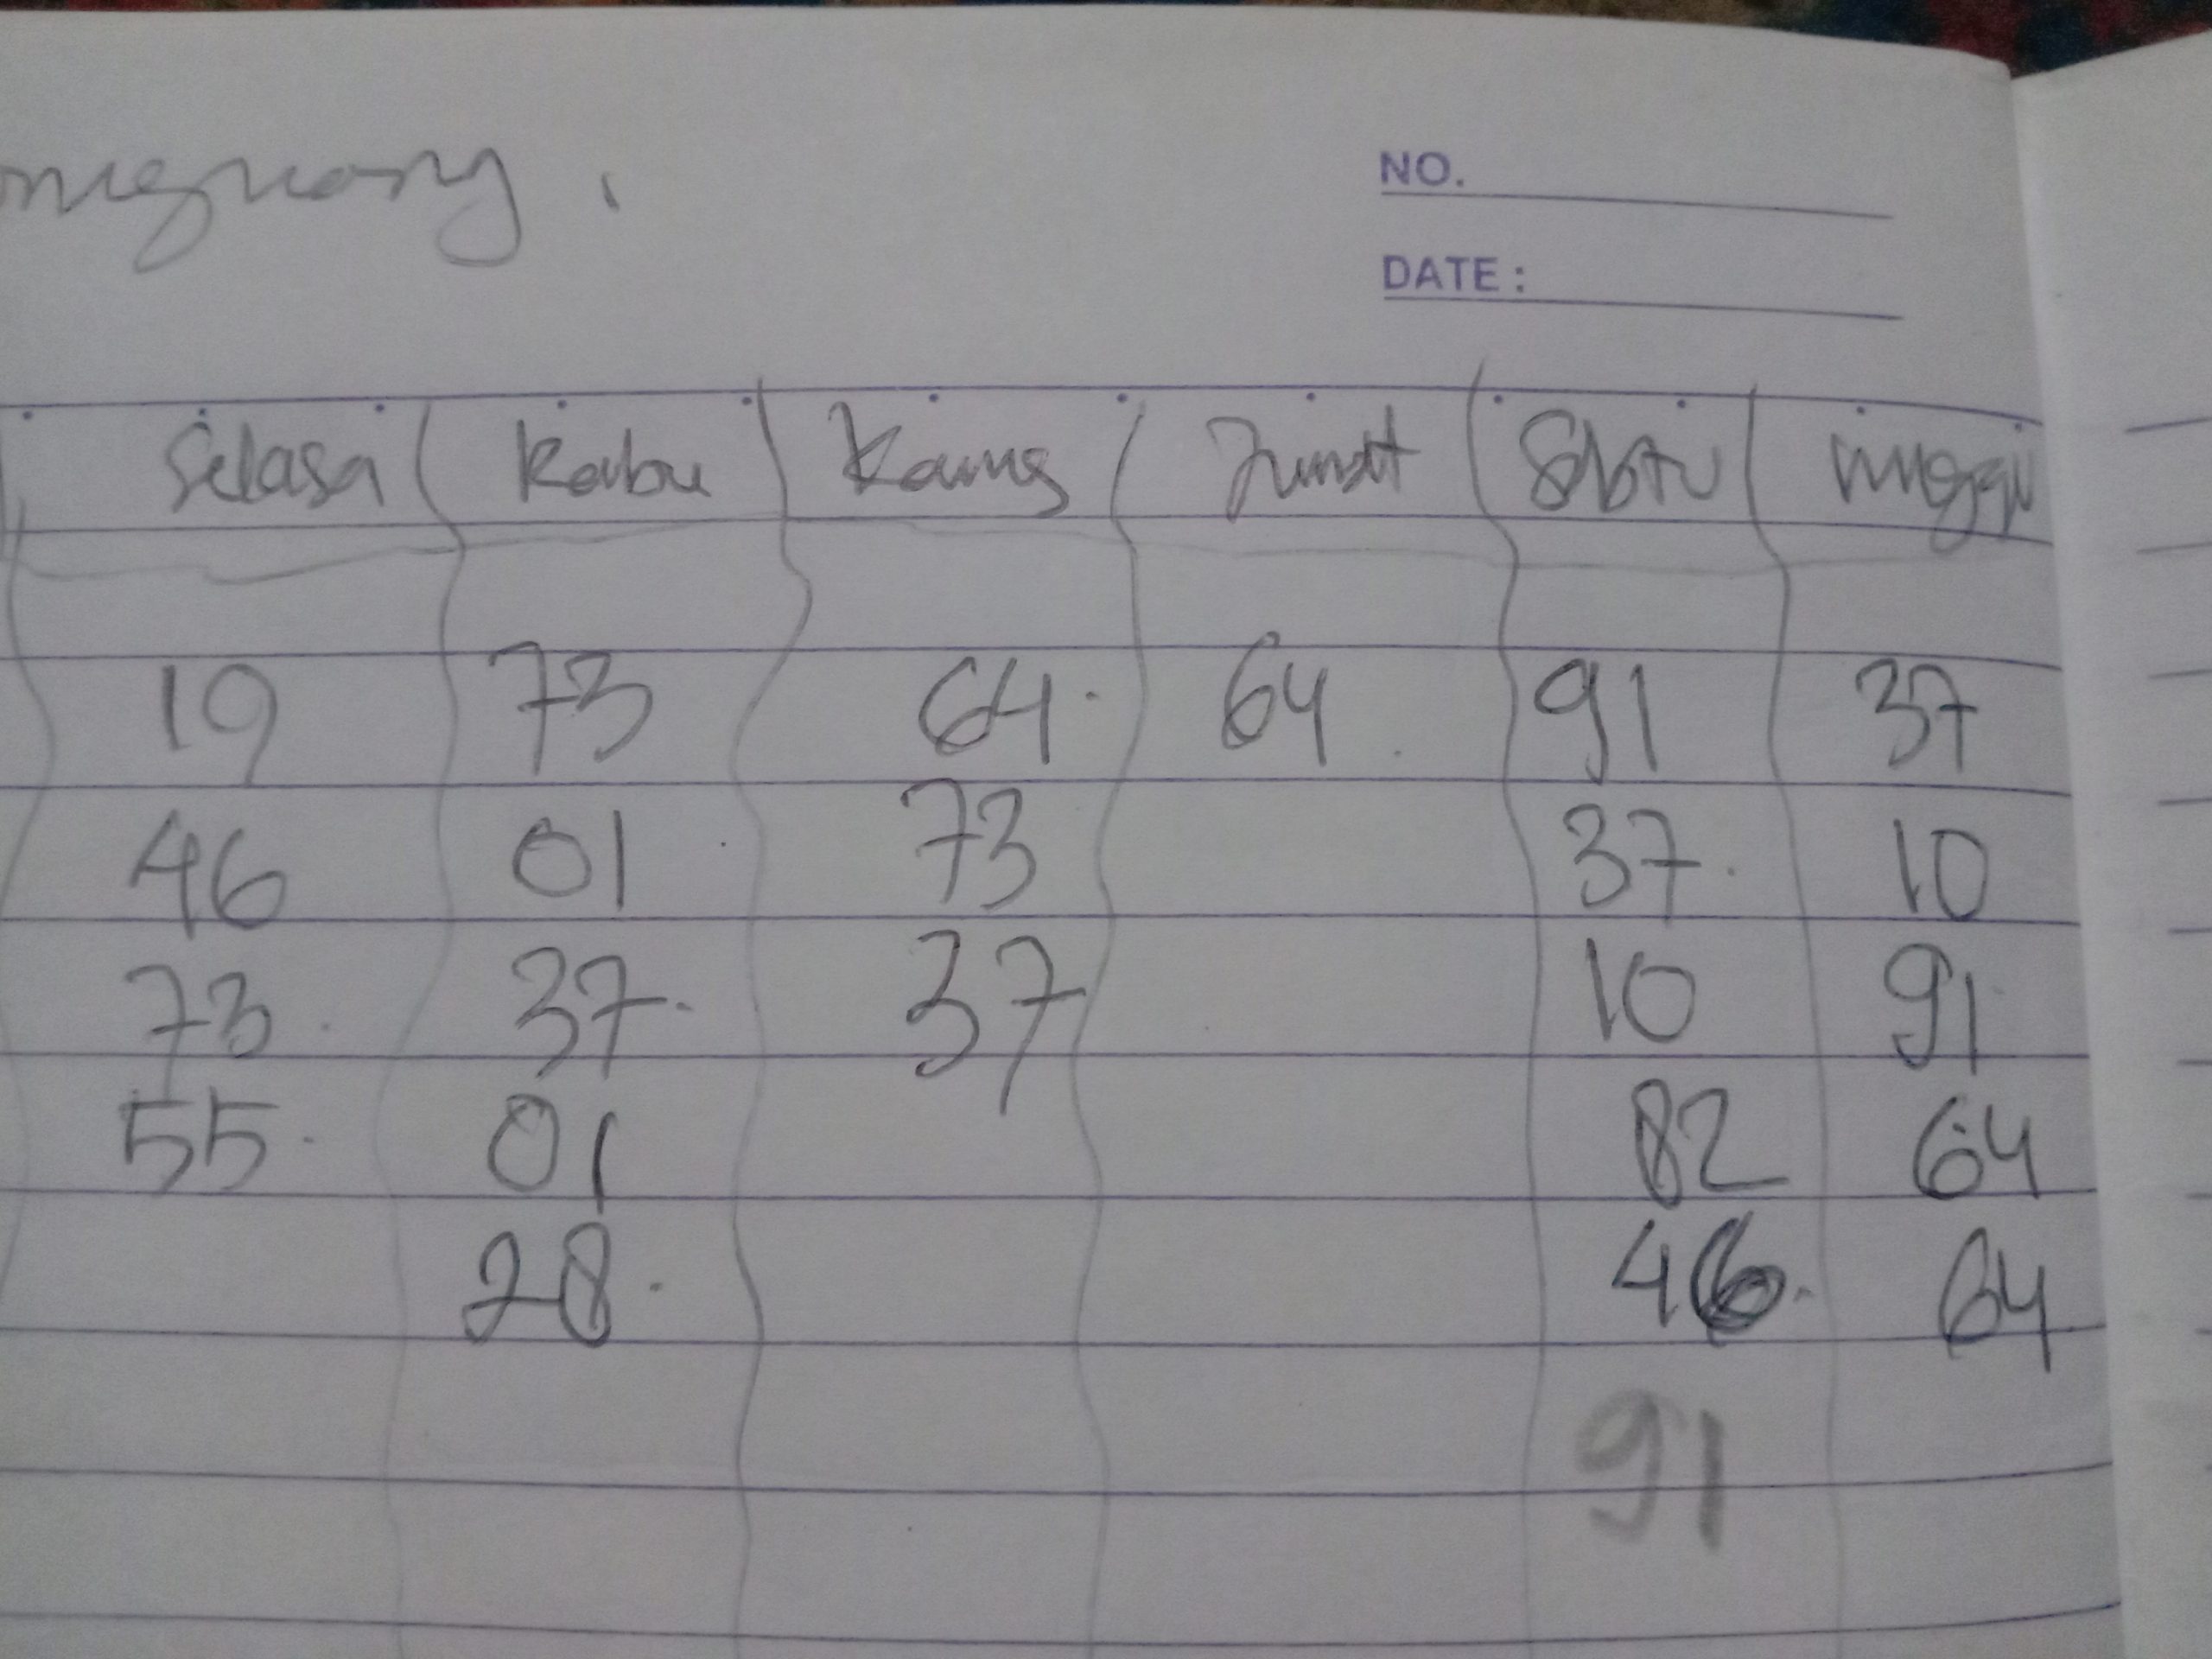 NO.
DATE :
Selasa Rabu Kamis Jumat Sbtu minggu
19 73 64. 64 91 37
46 01 73 37. 10
73 37. 37 10 91
55 01 82 64
28. 46. 64
91